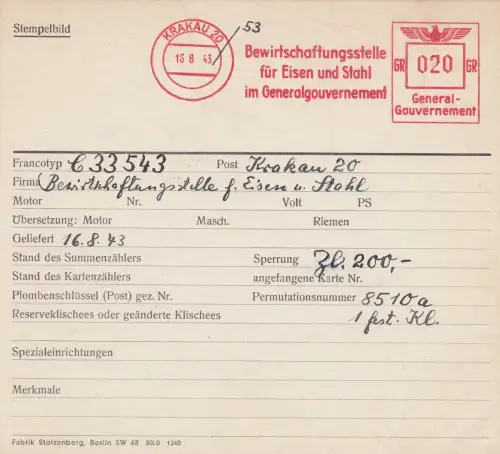 Stempelbild
53
KRAKAU 20
16 8 43
Bewirtschaftungsstelle
für Eisen und Stahl
im Generalgouvernement
GR 020 GR
General-
Gouvernement
Francotyp C 33543 Post Krakau 20
Firma Bewirtschaftungsstelle f. Eisen u. Stahl
Motor Nr. Volt PS
Übersetzung: Motor Masch. Riemen
Geliefert 16.8.43
Stand des Summenzählers Sperrung Zl. 200,-
Stand des Kartenzählers angefangene Karte Nr.
Plombenschlüssel (Post) gez. Nr. Permutationsnummer 8510a
Reserveklischees oder geänderte Klischees 1 fest. Kl.
Spezialeinrichtungen
Merkmale
Fabrik Stolzenberg, Berlin SW 68 30L0 1240